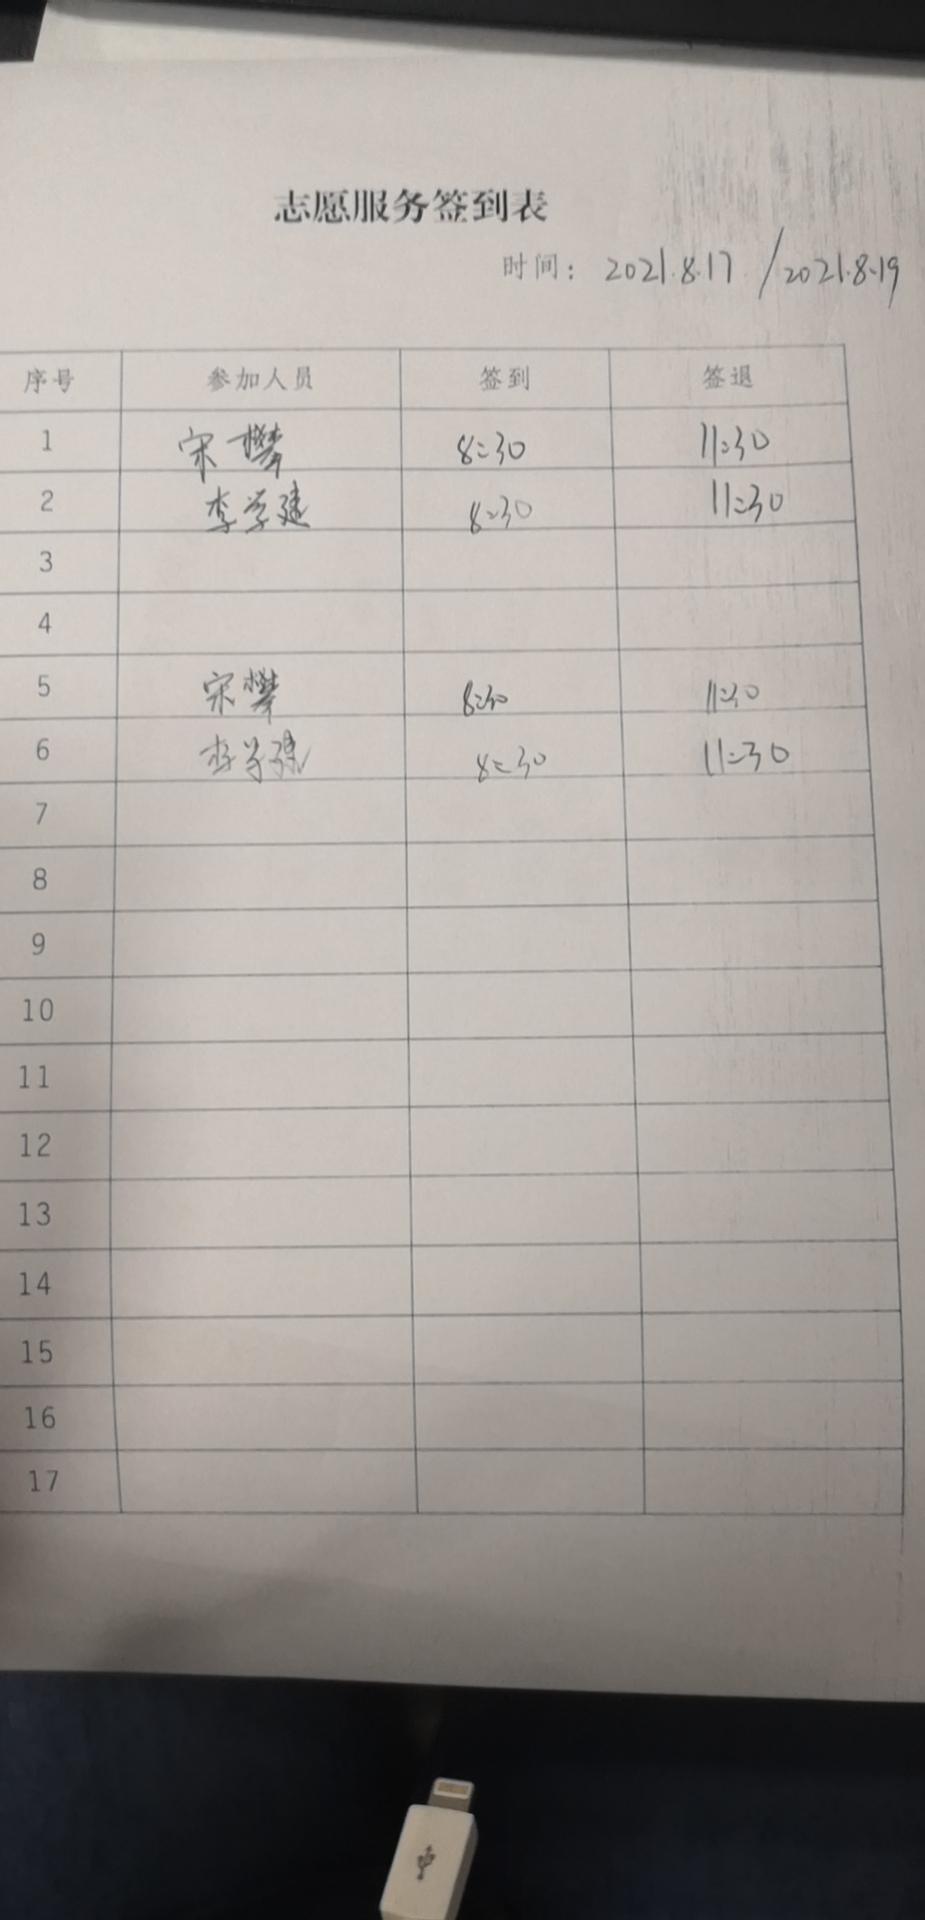 志愿服务签到表
时间： 2021.8.17 / 2021.8.19
序号 参加人员 签到 签退
1 宋攀 8:30 11:30
2 李学建 8:30 11:30
3
4
5 宋攀 8:30 11:30
6 李学建 8:30 11:30
7
8
9
10
11
12
13
14
15
16
17